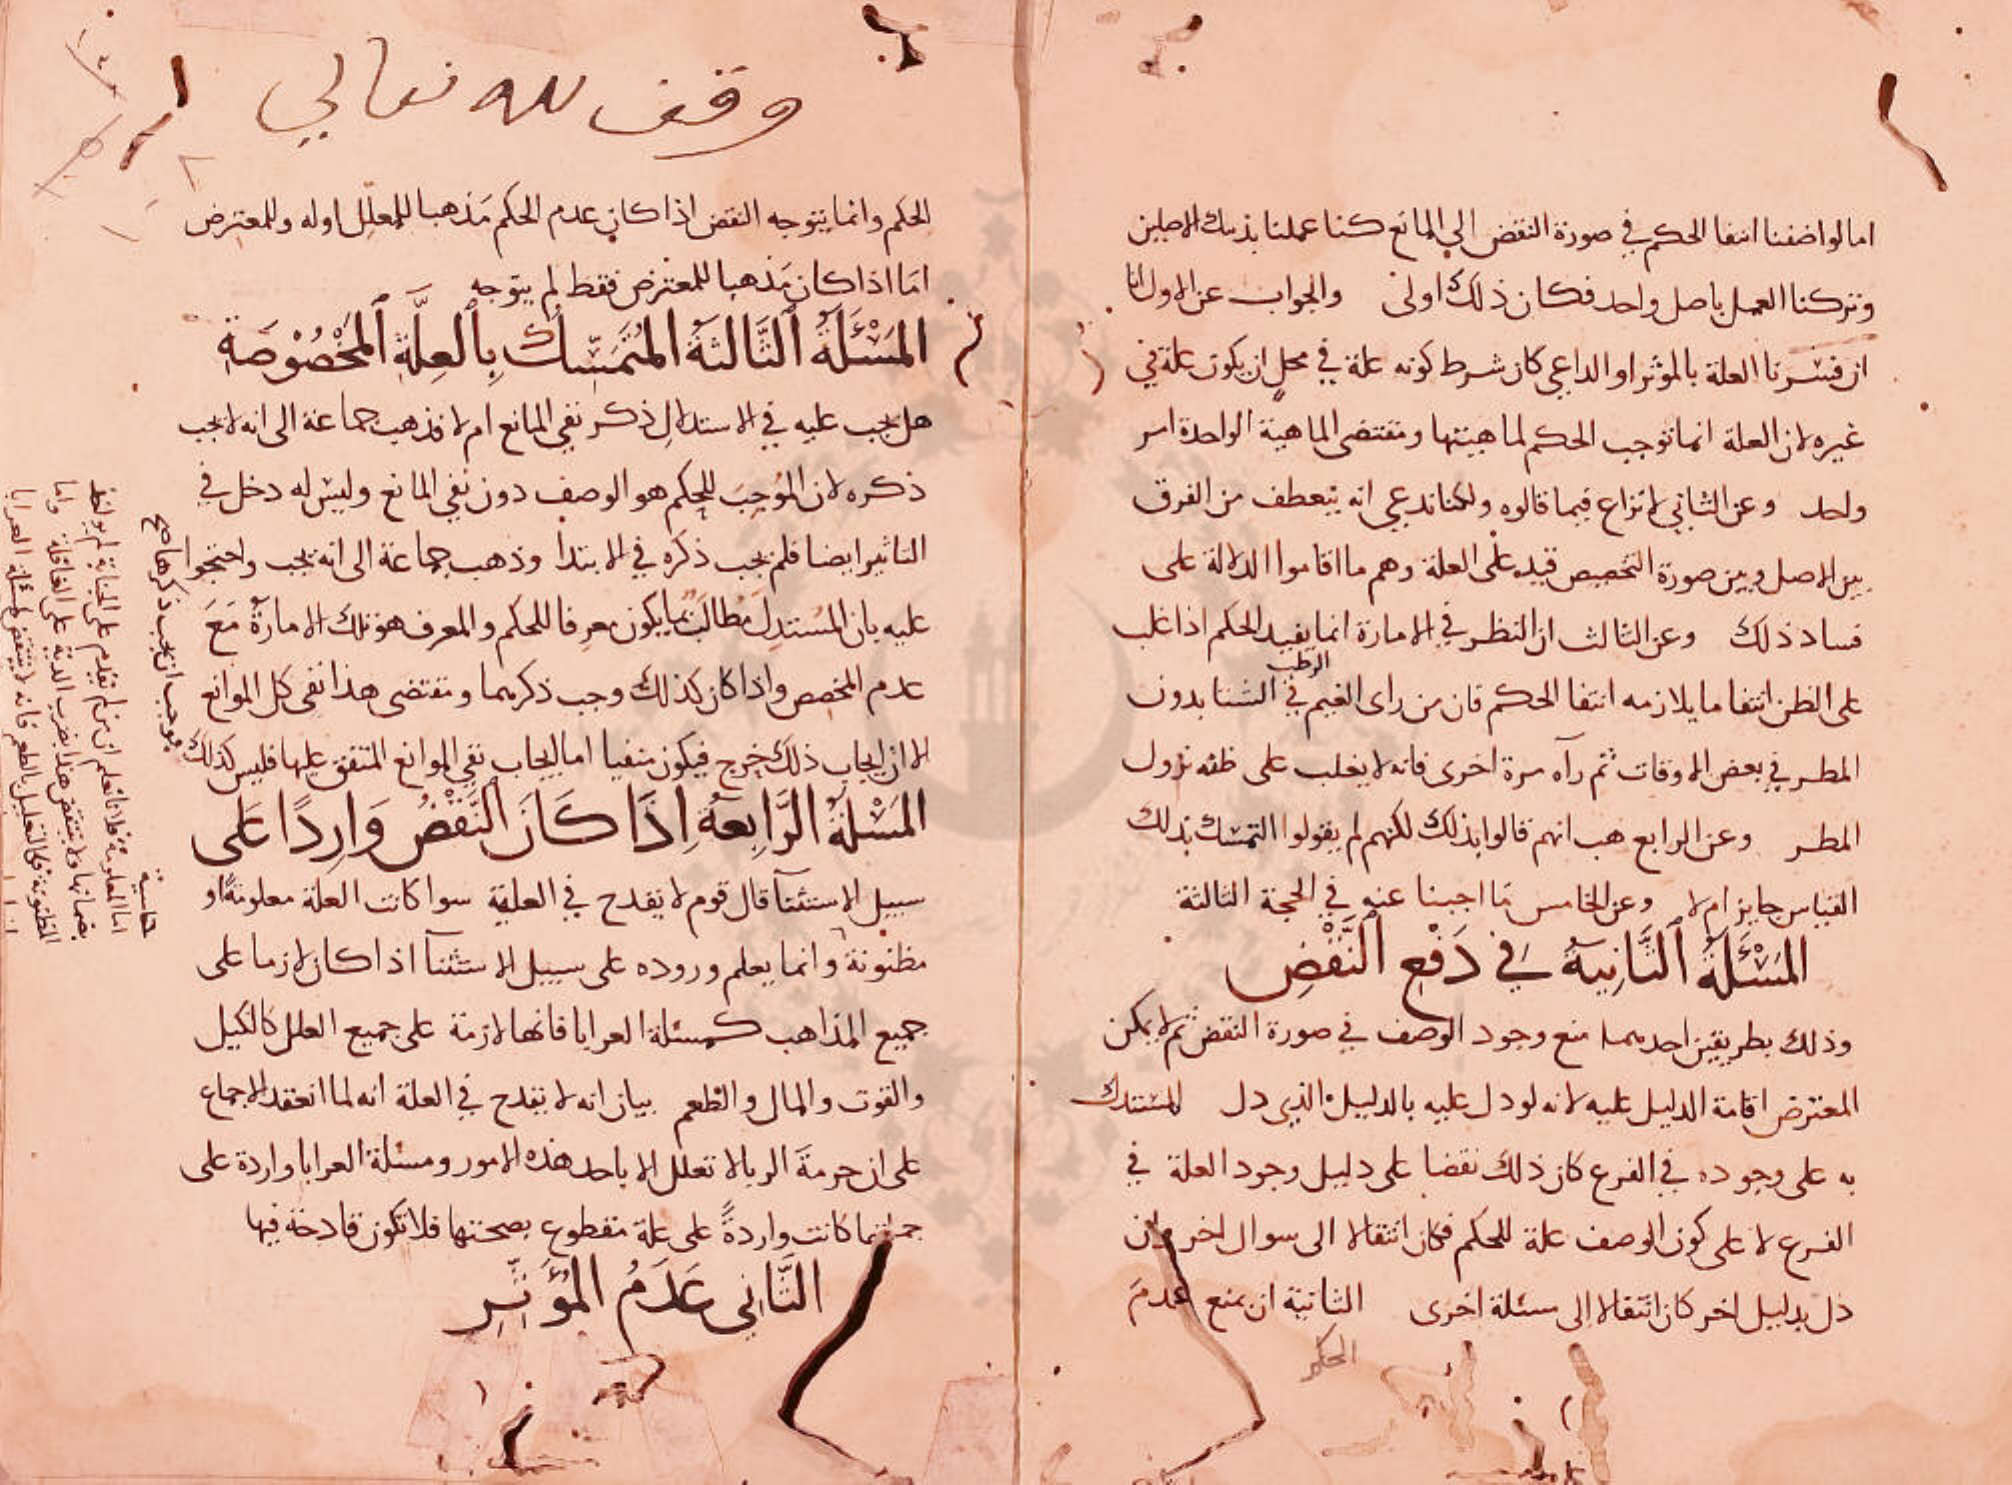 اما لو اضفنا انتفا الحكم في صورة النقض الي المانع كنا عملنا بذينك الاصلين
وتركنا العمل باصل واحد فكان ذلك اولى والجواب عن الاول انا
ان فسرنا العلة بالموثر او الداعي كان شرط كونه علة في محل ان يكون علة في
غيره لان العلة انما توجب الحكم لماهيتها ومقتضى الماهية الواحدة امر
واحد وعن الثاني لا نزاع فيما قالوه ولكنا ندعي انه ينعطف من الفرق
بين الاصل وبين صورة التخصيص قيد على العلة وهم ما اقاموا الدلالة على
فساد ذلك وعن الثالث ان النظر في الامارة انما يفيد الحكم اذا غلب
على الظن انتفا ما يلازمه انتفا الحكم فان من راى الغيم الرطب في الشتا بدون
المطر في بعض الاوقات ثم رآه مرة اخرى فانه لا يغلب على ظنه نزول
المطر وعن الرابع هب انهم قالوا بذلك لكنهم لم يقولوا التمسك بذلك
القياس جايز ام لا وعن الخامس ما اجبنا عنه في الحجة الثالثة
المَسْئَلَةُ الثَّانِيَةُ فِي دَفْعِ النَّقْضِ
وذلك بطريقين احدهما منع وجود الوصف في صورة النقض ثم لا يمكن
المعترض اقامة الدليل عليه لانه لو دل عليه بالدليل الذي دل المستدل
به على وجوده في الفرع كان ذلك نقضا على دليل وجود العلة في
الفرع لا على كون الوصف علة للحكم فكان انتقالا الى سوال اخر وان
دل بدليل اخر كان انتقالا الى مسئلة اخرى الثانية ان يمنع عدم
الحكم
وقف لله تعالي
الحكم وانما يتوجه النقض اذا كان عدم الحكم مذهبا للمعلل اوله وللمعترض
اما اذا كان مذهبا للمعترض فقط لم يتوجه
المَسْئَلَةُ الثَّالِثَةُ المُتَمَسِّكُ بِالعِلَّةِ المَخْصُوْصَةِ
هل يجب عليه في الاستدلال ذكر نفي المانع ام لا فذهب جماعة الى انه لا يجب
ذكره لان الموجب للحكم هو الوصف دون نفي المانع وليس له دخل في
التاثير ايضا فلم يجب ذكره في الابتدا وذهب جماعة الى انه يجب واحتجوا
عليه بان المستدل مطالب بما يكون معرفا للحكم والمعرف هو تلك الامارة مع
عدم المخصص واذا كان كذلك وجب ذكرهما ومقتضى هذا نفي كل الموانع
الا ان ايجاب ذلك حرج فيكون منفيا اما ايجاب نفي الموانع المتفق عليها فليس كذلك
فوجب ان يجب ذكرها صح
المَسْئَلَةُ الرَّابِعَةُ إِذَا كَانَ النَّقْضُ وَارِدًا عَلَى
سبيل الاستثنآ قال قوم لا يقدح في العلية سوا كانت العلة معلومة او
مظنونة وانما يعلم وروده على سبيل الاستثنآ اذا كان لازما على
جميع المذاهب كمسئلة العرايا فانها لازمة على جميع العلل كالكيل
والقوت والمال والطعم بيان انه لا يقدح في العلة انه لما انعقد الاجماع
على ان حرمة الربا لا تعلل الا باحد هذه الامور ومسئلة العرايا واردة على
جملتها كانت واردة على علة مقطوع بصحتها فلا تكون قادحة فيها
الثَّانِي عَدَمُ المُؤَثِّرِ
حاشية
اما المعلومة فلانا نعلم ان من لم يقدم على الجناية لم يواخذ
بضمانها ولا ينتقض هذا بضرب الدية على العاقلة واما
المظنونة فكالتعليل بالطعم فانه لا ينتقض بمسئلة العرايا